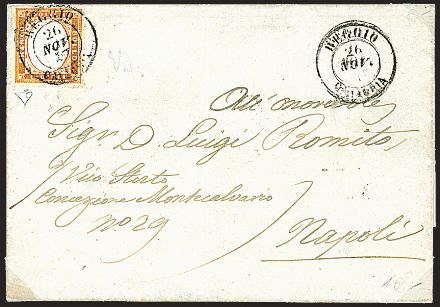 REGGIO
26
NOV.
CALABRIA
REGGIO
26
NOV.
CALABRIA
Sigr. D. Luigi Romito
Vico Storto
Concezione Montecalvario
no 29
Napoli